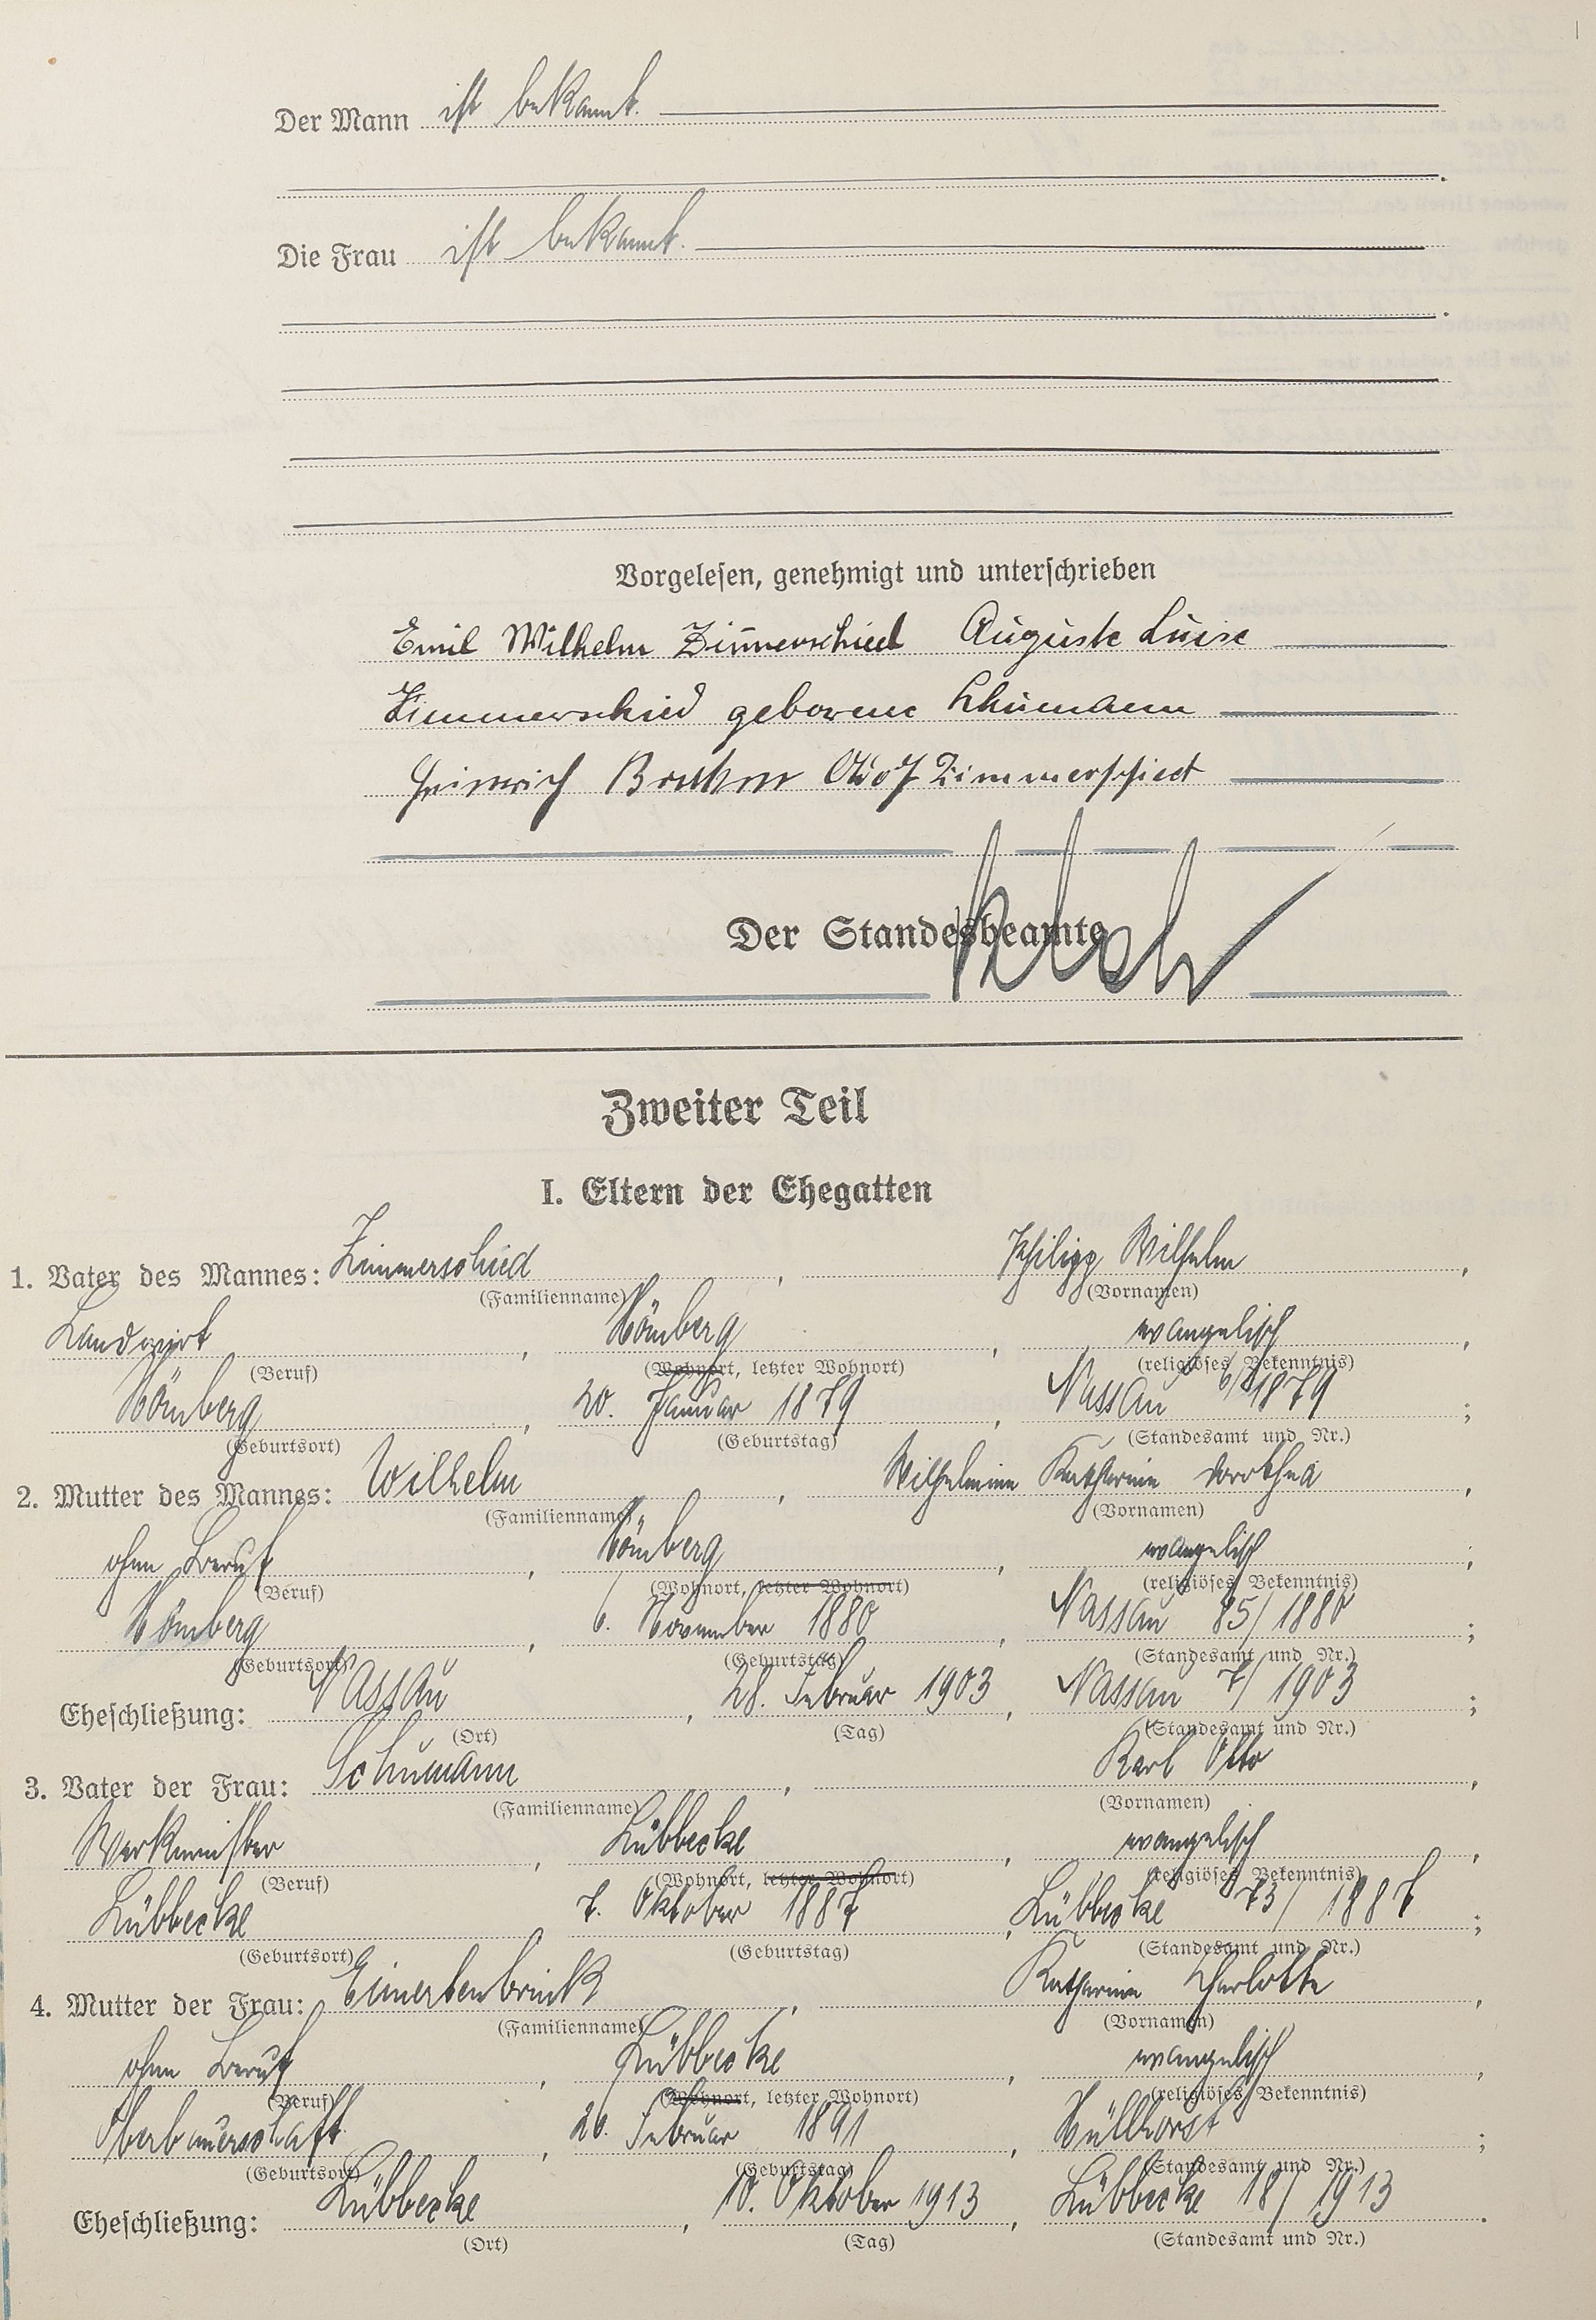 Der Mann ist bekannt.
Die Frau ist bekannt.
Vorgelesen, genehmigt und unterschrieben
Emil Wilhelm Zim̄erschied Auguste Luise
Zimmerschied geborene Schumann
Heinrich Adolf Zimmerschied
Der Standesbeamte
Zweiter Teil
I. Eltern der Ehegatten
1. Vater des Mannes: Zimmerschied, Philipp Wilhelm,
(Familienname) (Vornamen)
Landwirt, Hömberg, evangelisch,
(Beruf) (Wohnort, letzter Wohnort) (religiöses Bekenntnis)
Hömberg, 20. Januar 1879, Nassau 6/1879;
(Geburtsort) (Geburtstag) (Standesamt und Nr.)
2. Mutter des Mannes: Wilhelm, Wilhelmine Katharine Dorothea,
(Familienname) (Vornamen)
ohne Beruf, Hömberg, evangelisch,
(Beruf) (Wohnort, letzter Wohnort) (religiöses Bekenntnis)
Hömberg, 6. November 1880, Nassau 85/1880;
(Geburtsort) (Geburtstag) (Standesamt und Nr.)
Eheschließung: Nassau, 28. Februar 1903, Nassau 7/1903;
(Ort) (Tag) (Standesamt und Nr.)
3. Vater der Frau: Schumann, Karl Otto,
(Familienname) (Vornamen)
Werkmeister, Lübbecke, evangelisch,
(Beruf) (Wohnort, letzter Wohnort) (religiöses Bekenntnis)
Lübbecke, 7. Oktober 1887, Lübbecke 73/1887;
(Geburtsort) (Geburtstag) (Standesamt und Nr.)
4. Mutter der Frau: Eimertenbrink, Katharine Charlotte,
(Familienname) (Vornamen)
ohne Beruf, Lübbecke, evangelisch,
(Beruf) (Wohnort, letzter Wohnort) (religiöses Bekenntnis)
Oberbauerschaft, 26. Februar 1891, Hüllhorst;
(Geburtsort) (Geburtstag) (Standesamt und Nr.)
Eheschließung: Lübbecke, 10. Oktober 1913, Lübbecke 18/1913.
(Ort) (Tag) (Standesamt und Nr.)